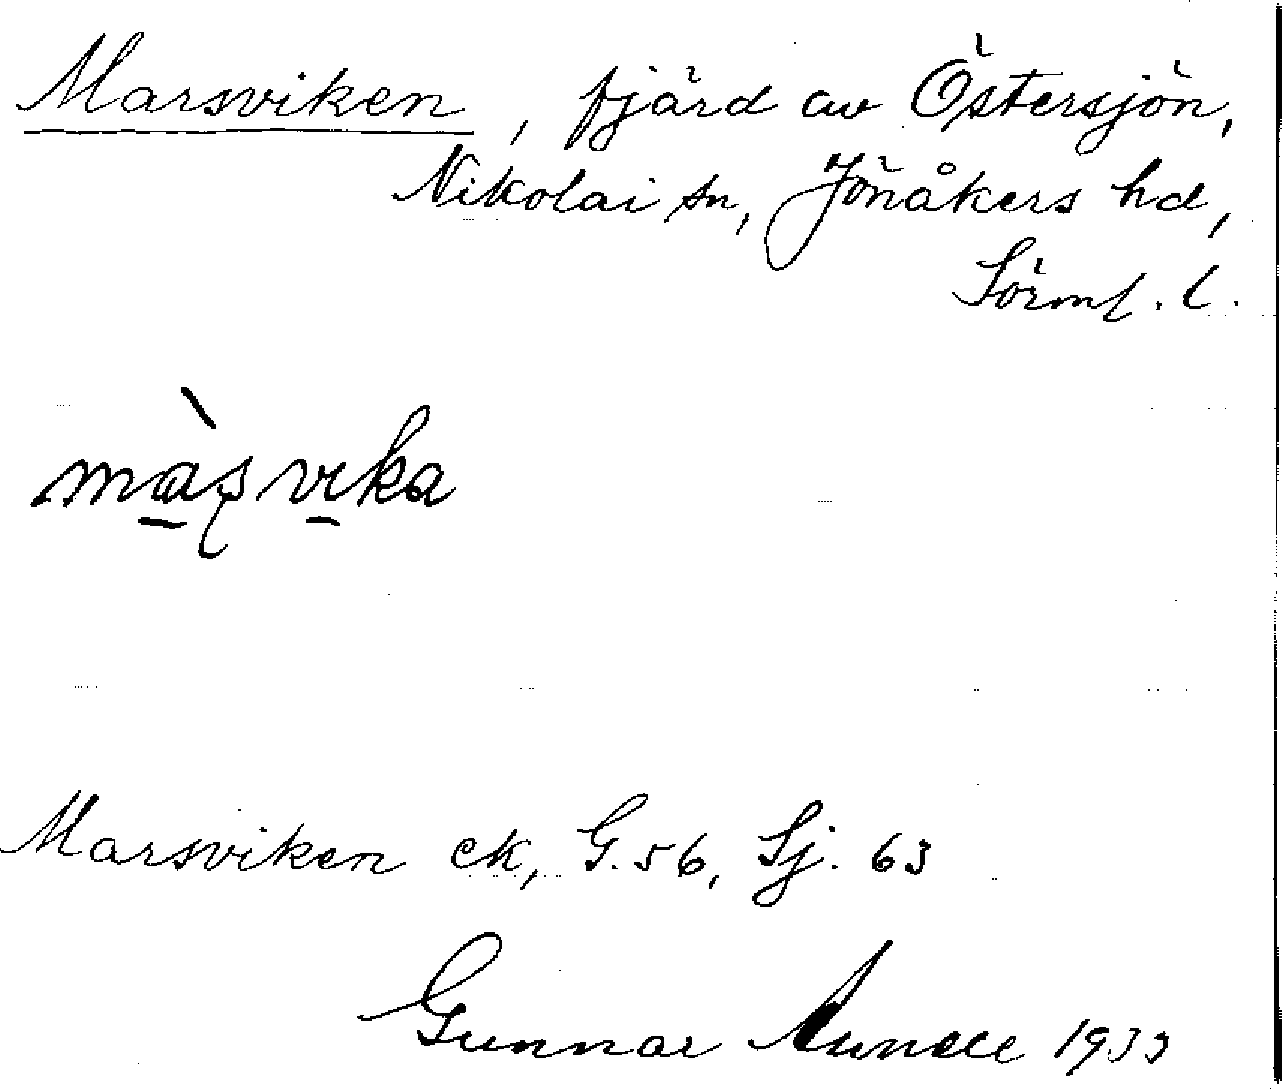 Marsviken, fjärd av Östersjön,
Nikolai sn, Jönåkers hd,
Sörml. l.
màsvika
Marsviken ek, G. 56, Sj. 63
Gunnar 1933